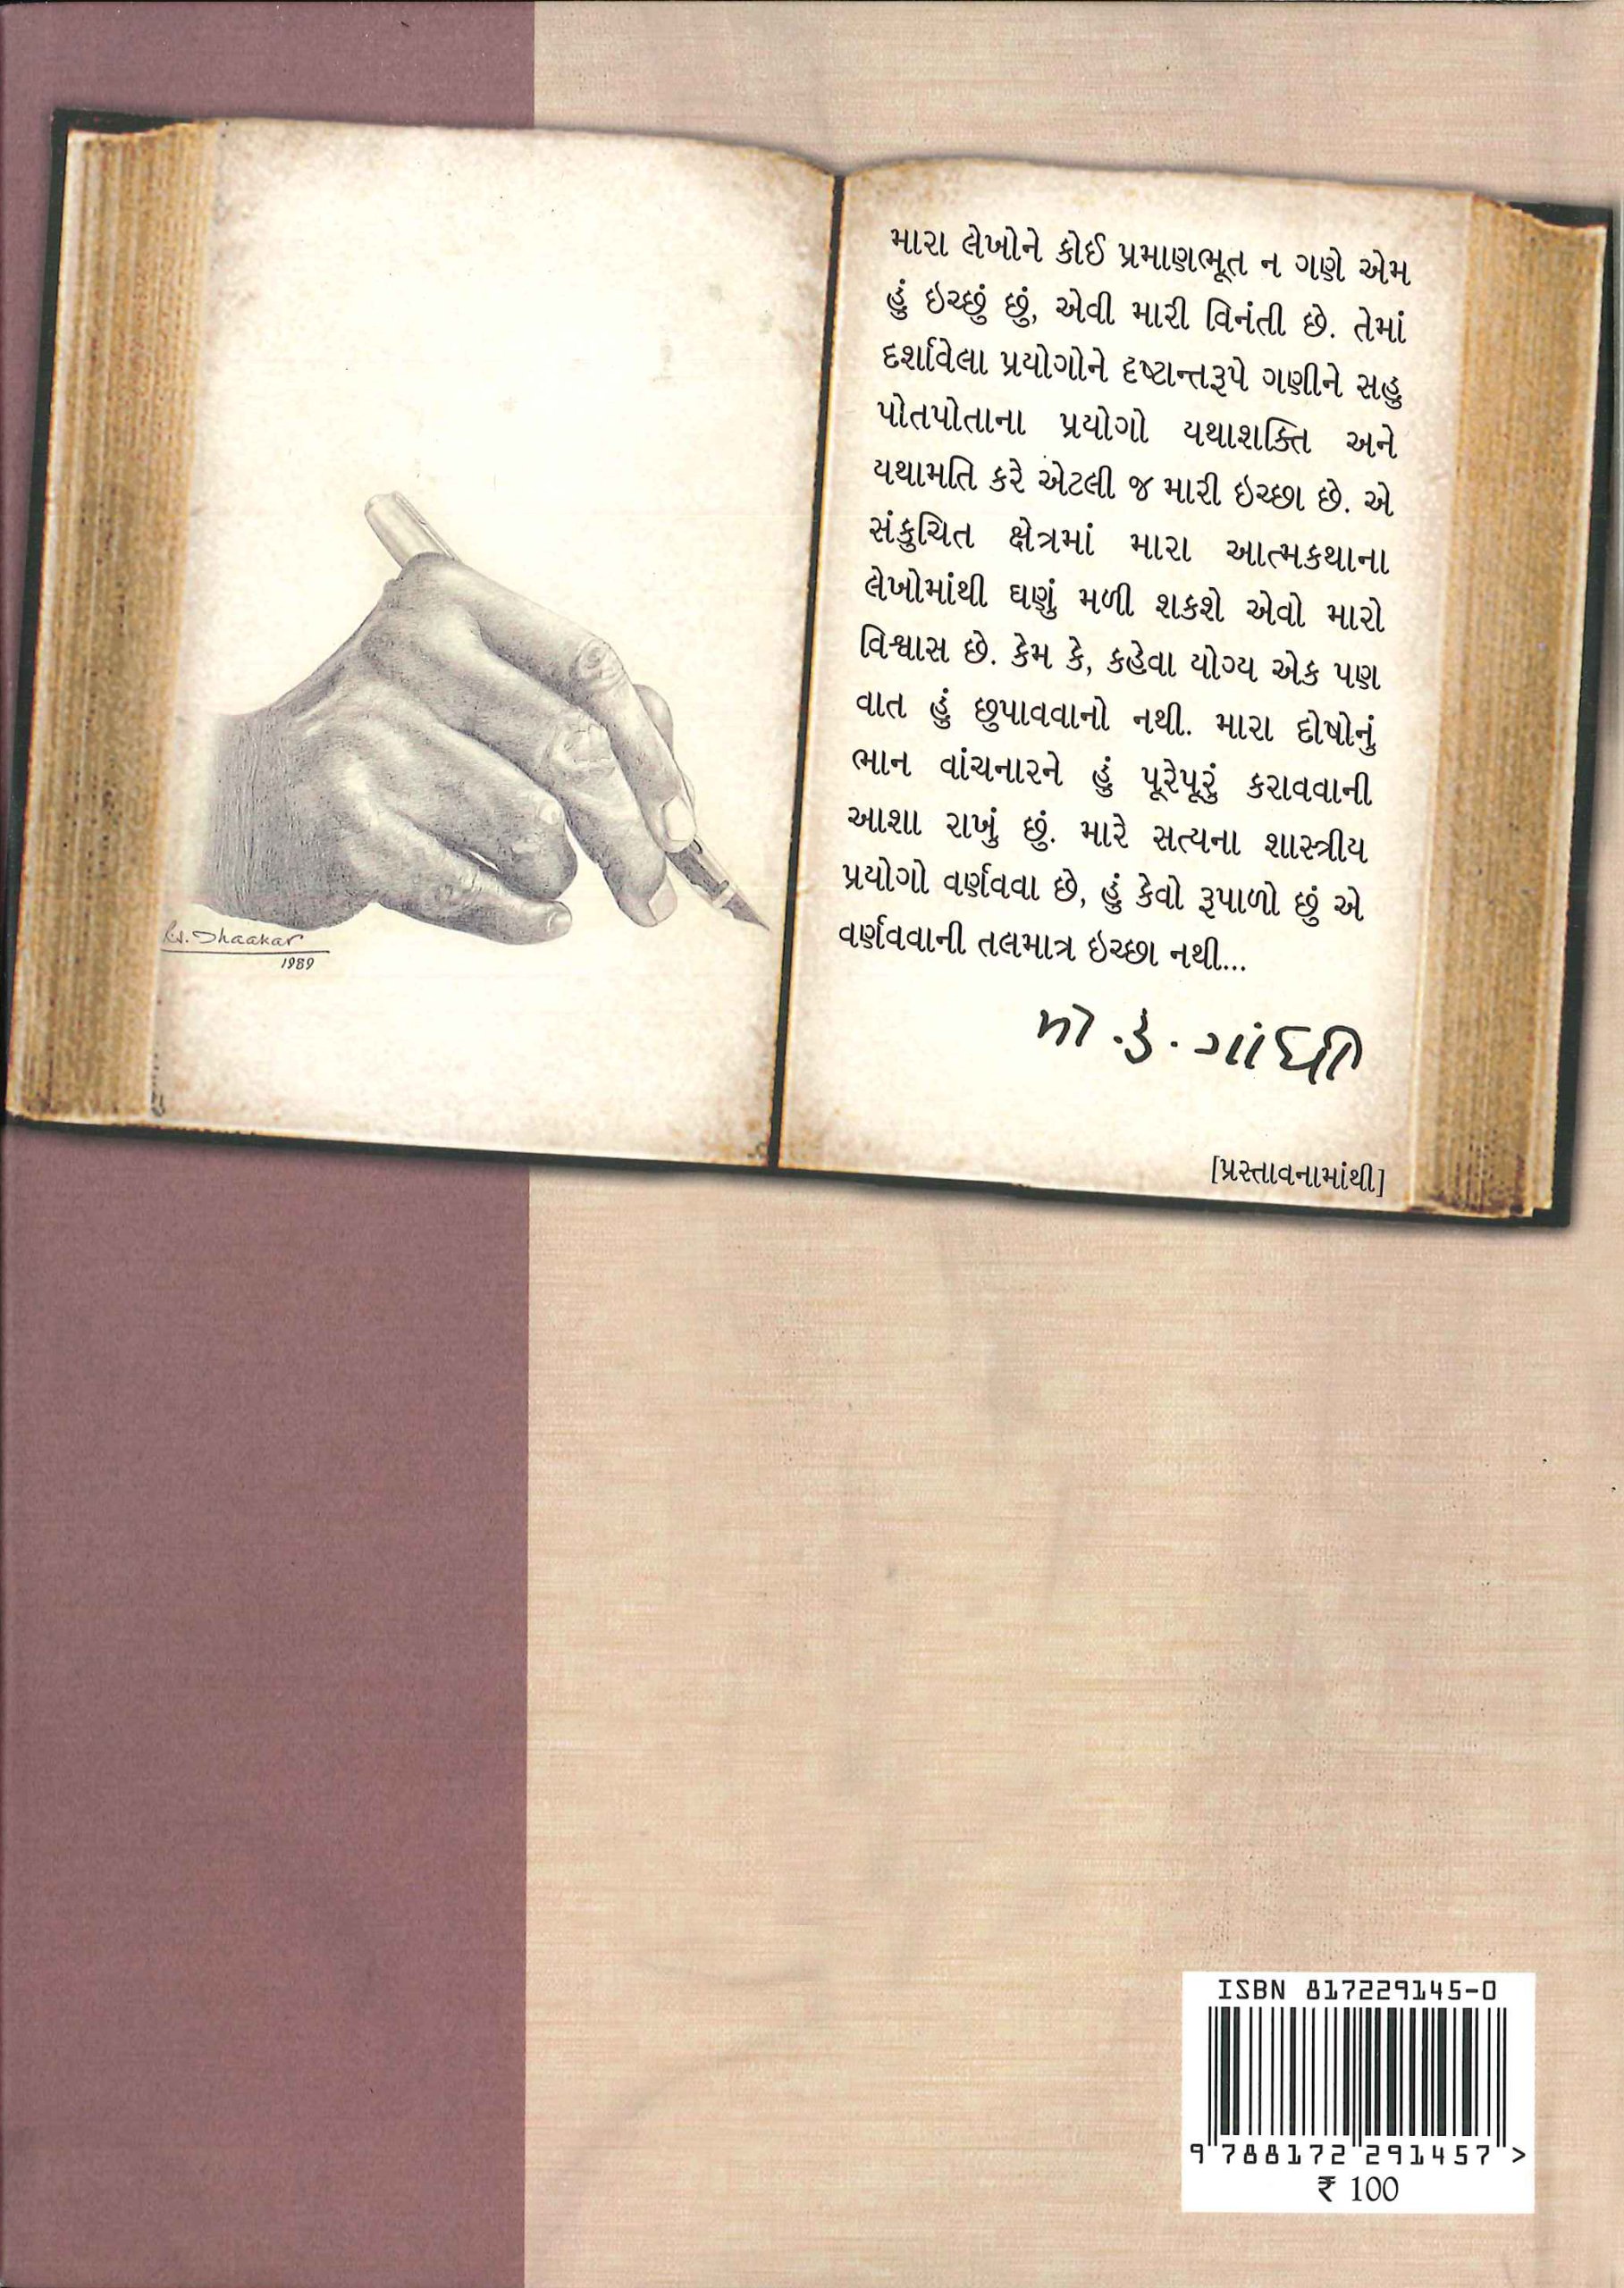 મારા લેખોને કોઈ પ્રમાણભૂત ન ગણે એમ
હું ઇચ્છું છું, એવી મારી વિનંતી છે. તેમાં
દર્શાવેલા પ્રયોગોને દૃષ્ટાન્તરૂપે ગણીને સહુ
પોતપોતાના પ્રયોગો યથાશક્તિ અને
યથામતિ કરે એટલી જ મારી ઇચ્છા છે. એ
સંકુચિત ક્ષેત્રમાં મારા આત્મકથાના
લેખોમાંથી ઘણું મળી શકશે એવો મારો
વિશ્વાસ છે. કેમ કે, કહેવા યોગ્ય એક પણ
વાત હું છુપાવવાનો નથી. મારા દોષોનું
ભાન વાંચનારને હું પૂરેપૂરું કરાવવાની
આશા રાખું છું. મારે સત્યના શાસ્ત્રીય
પ્રયોગો વર્ણવવા છે, હું કેવો રૂપાળો છું એ
વર્ણવવાની તલમાત્ર ઇચ્છા નથી...
મો.ક.ગાંધી
[પ્રસ્તાવનામાંથી]
1989
ISBN 817229145-0
9 788172 291457 >
₹ 100